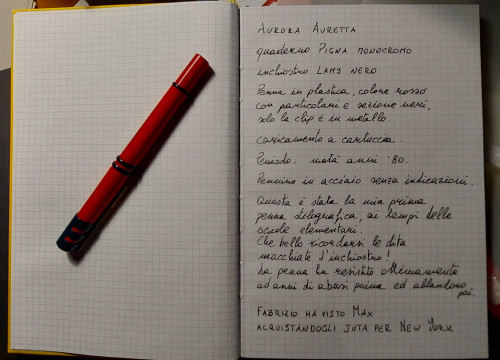 AURORA AURETTA
quaderno PIGNA MONOCROMO
inchiostro LAMY NERO
Penna in plastica, colore rosso
con particolari e sezione neri,
solo la clip è in metallo
caricamento a cartuccia.
Periodo: metà anni '80.
Pennino in acciaio senza indicazioni.
Questa è stata la mia prima
penna stilografica, ai tempi delle
scuole elementari.
Che bello ricordarsi le dita
macchiate d'inchiostro!
La penna ha resistito ottimamente
ad anni di abusi prima ed abbandono
poi.
FABRIZIO HA VISTO MAX
ACQUISTANDOGLI JUTA PER NEW YORK